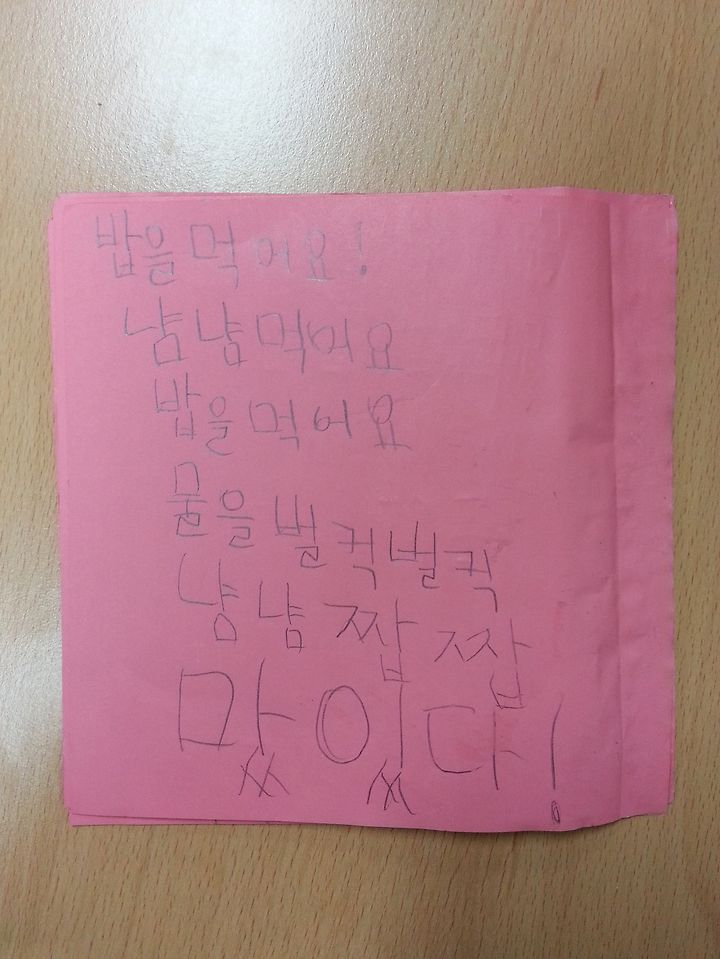 밥을 먹어요!
냠냠먹어요
밥을 먹어요
물을 벌컥벌컥
냠냠짭짭
맜있다!